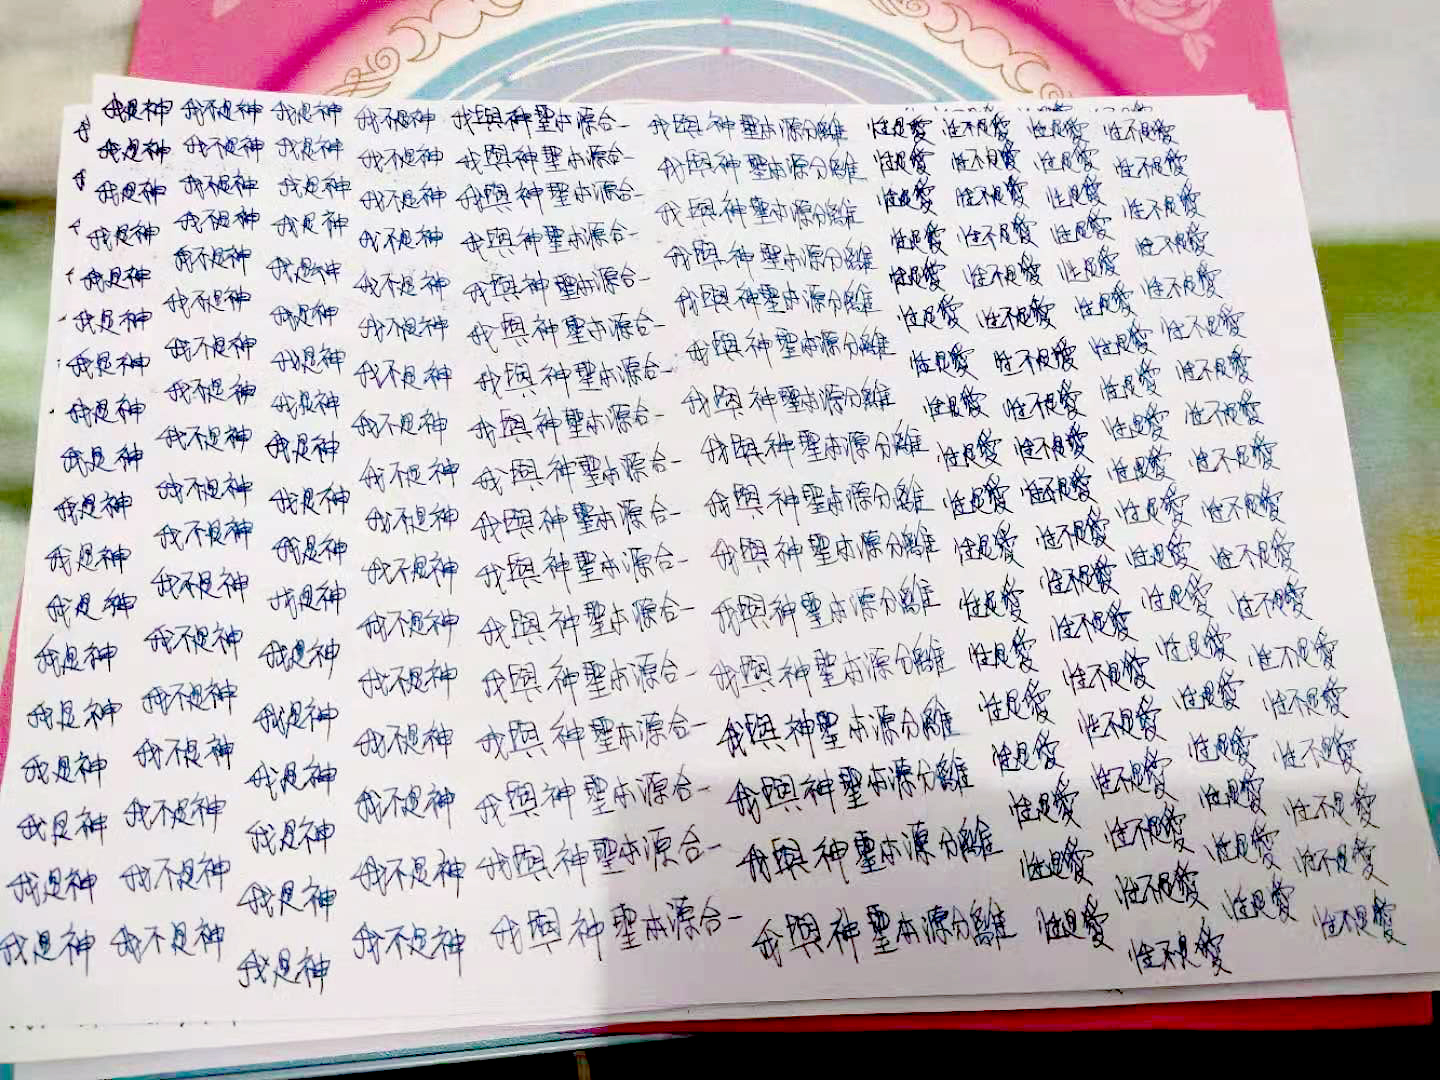 我是神 我不是神 我是神 我不是神 我與神聖本源合一 我與神聖本源分離 性是愛 性不是愛 性是愛 性不是愛
我是神 我不是神 我是神 我不是神 我與神聖本源合一 我與神聖本源分離 性是愛 性不是愛 性是愛 性不是愛
我是神 我不是神 我是神 我不是神 我與神聖本源合一 我與神聖本源分離 性是愛 性不是愛 性是愛 性不是愛
我是神 我不是神 我是神 我不是神 我與神聖本源合一 我與神聖本源分離 性是愛 性不是愛 性是愛 性不是愛
我是神 我不是神 我是神 我不是神 我與神聖本源合一 我與神聖本源分離 性是愛 性不是愛 性是愛 性不是愛
我是神 我不是神 我是神 我不是神 我與神聖本源合一 我與神聖本源分離 性是愛 性不是愛 性是愛 性不是愛
我是神 我不是神 我是神 我不是神 我與神聖本源合一 我與神聖本源分離 性是愛 性不是愛 性是愛 性不是愛
我是神 我不是神 我是神 我不是神 我與神聖本源合一 我與神聖本源分離 性是愛 性不是愛 性是愛 性不是愛
我是神 我不是神 我是神 我不是神 我與神聖本源合一 我與神聖本源分離 性是愛 性不是愛 性是愛 性不是愛
我是神 我不是神 我是神 我不是神 我與神聖本源合一 我與神聖本源分離 性是愛 性不是愛 性是愛 性不是愛
我是神 我不是神 我是神 我不是神 我與神聖本源合一 我與神聖本源分離 性是愛 性不是愛 性是愛 性不是愛
我是神 我不是神 我是神 我不是神 我與神聖本源合一 我與神聖本源分離 性是愛 性不是愛 性是愛 性不是愛
我是神 我不是神 我是神 我不是神 我與神聖本源合一 我與神聖本源分離 性是愛 性不是愛 性是愛 性不是愛
我是神 我不是神 我是神 我不是神 我與神聖本源合一 我與神聖本源分離 性是愛 性不是愛 性是愛 性不是愛
我是神 我不是神 我是神 我不是神 我與神聖本源合一 我與神聖本源分離 性是愛 性不是愛 性是愛 性不是愛
我是神 我不是神 我是神 我不是神 我與神聖本源合一 我與神聖本源分離 性是愛 性不是愛 性是愛 性不是愛
我是神 我不是神 我是神 我不是神 我與神聖本源合一 性是愛 性不是愛 性是愛 性不是愛
我是神 我不是神 我是神 性是愛 性不是愛 性是愛 性不是愛
性不是愛 性是愛